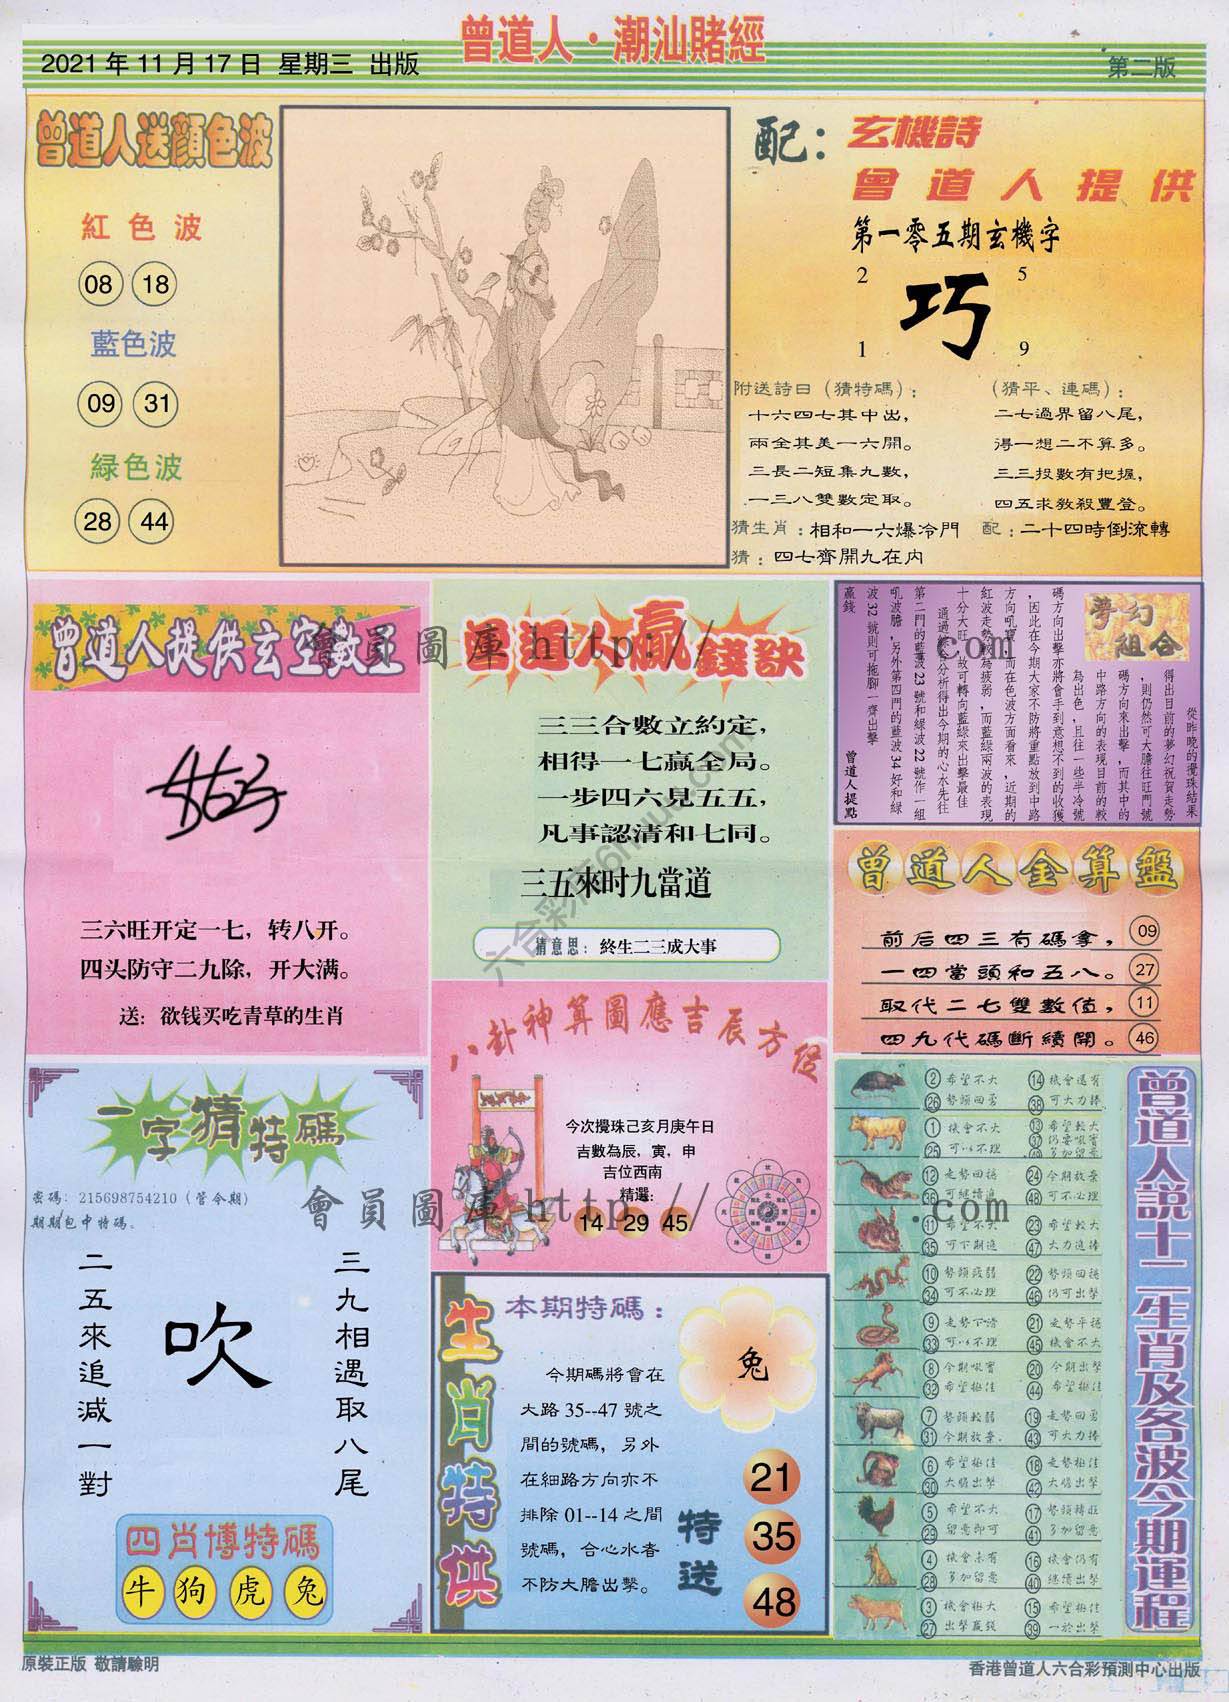 曾道人·潮汕賭經
2021年11月17日 星期三 出版
第二版
曾道人送顏色波
紅色波
08 18
藍色波
09 31
綠色波
28 44
配：玄機詩
曾道人提供
第一零五期玄機字
2 5
巧
1 9
附送詩曰（猜特碼）：
十六四七其中出，
兩全其美一六開。
三長二短集九數，
一三八雙數定取。
（猜平、連碼）：
二七過界留八尾，
得一想二不算多。
三三投數有把握，
四五求教殺豐登。
猜生肖：相和一六爆冷門
配：二十四時倒流轉
猜：四七齊開九在內
曾道人提供玄空數王
三六旺开定一七，转八开。
四头防守二九除，开大满。
送：欲钱买吃青草的生肖
曾道人贏錢訣
三三合數立約定，
相得一七贏全局。
一步四六見五五，
凡事認清和七同。
三五來时九當道
猜意思：終生二三成大事
夢幻
組合
從昨晚的攪珠結果
得出目前的夢幻祝賀走勢
，則仍然可大膽往旺門號
碼方向來出擊，而其中的
中路方向的表現目前的較
為出色，且往一些半冷號
碼方向出擊亦將會手到意想不到的收獲
，因此在今期大家不防將重點放到中路
方向吼寶，而在色波方面看來，近期的
紅波走勢較為疲弱，而藍綠兩波的表現
十分大旺，故可轉向藍綠來出擊最佳
通過綜合分析得出今期的心水先往
第二門的藍波23號和綠波22號作一組
吼波膽，另外第四門的藍波34好和綠
波32號則可拖腳一齊出擊
贏錢
曾道人提點
曾道人金算盤
前后四三有碼拿， 09
一四當頭和五八。 27
取代二七雙數值， 11
四九代碼斷續開。 46
八卦神算圖應吉辰方位
今次攪珠己亥月庚午日
吉數為辰，寅，申
吉位西南
精選：
14 29 45
一字猜特碼
密碼：215698754210（管令期）
期期包中特碼。
三九相遇取八尾
吹
二五來追減一對
四肖博特碼
牛 狗 虎 兔
生肖特供
本期特碼：
兔
今期碼將會在
大路35--47號之
間的號碼，另外
在細路方向亦不
排除01--14之間
號碼，合心水者
不防大膽出擊。
特送
21
35
48
曾道人說十二生肖及各波今期運程
2 希望不大 14 機會還有
26 勢頭回勇 38 可大力捧
1 機會不大 13 希望較大
25 可以不理 37 仍要吼實
49 多加留意
12 走勢回穩 24 今期放棄
36 可繼續追 48 可不必理
11 希望不大 23 希望較大
35 可下期追 47 大力追捧
10 勢頭疲弱 22 勢頭回穩
34 可不必理 46 仍可出擊
9 走勢下滑 21 走勢平穩
33 可以不理 45 機會不大
8 今期吼實 20 今期出擊
32 希望極佳 44 希望極佳
7 勢頭較弱 19 走勢回勇
31 今期放棄. 43 可大力捧
6 希望極佳 18 走勢極佳
30 大膽出擊 42 大膽出擊
5 希望不大 17 勢頭轉旺
29 留意即可 41 多加留意
4 機會未有 16 機會仍有
28 多加留意 40 繼續出擊
3 機會極大 15 希望極佳
27 出擊贏錢 39 一於出擊
會員圖庫 http:// .com
會員圖庫 http:// .com
原裝正版 敬請驗明
香港曾道人六合彩預測中心出版